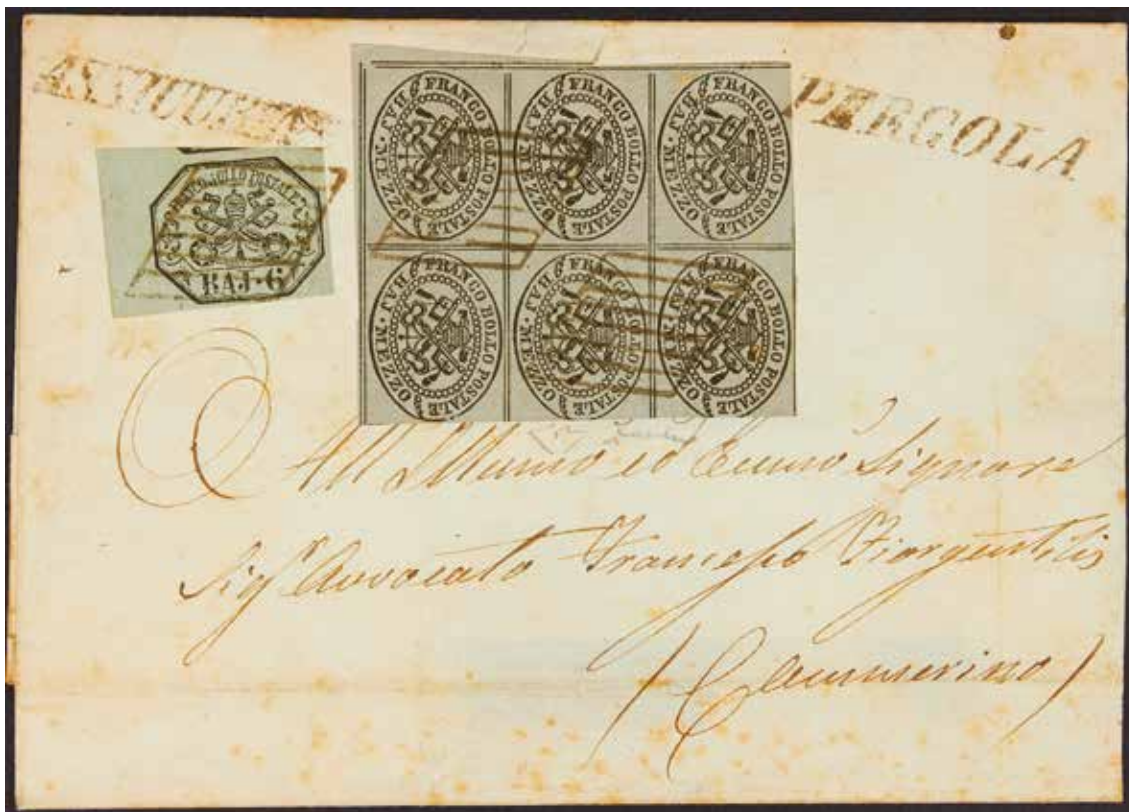 ASSICURATA
PERGOLA
FRANCO BOLLO POSTALE
BAJ·6
FRANCO BOLLO POSTALE BAJ·MEZZO
FRANCO BOLLO POSTALE BAJ·MEZZO
FRANCO BOLLO POSTALE BAJ·MEZZO
FRANCO BOLLO POSTALE BAJ·MEZZO
FRANCO BOLLO POSTALE BAJ·MEZZO
FRANCO BOLLO POSTALE BAJ·MEZZO
All Illumo ed Eccmo Signore
Sigr Avvocato Francesco Fiorgentilis
(Cammerino)